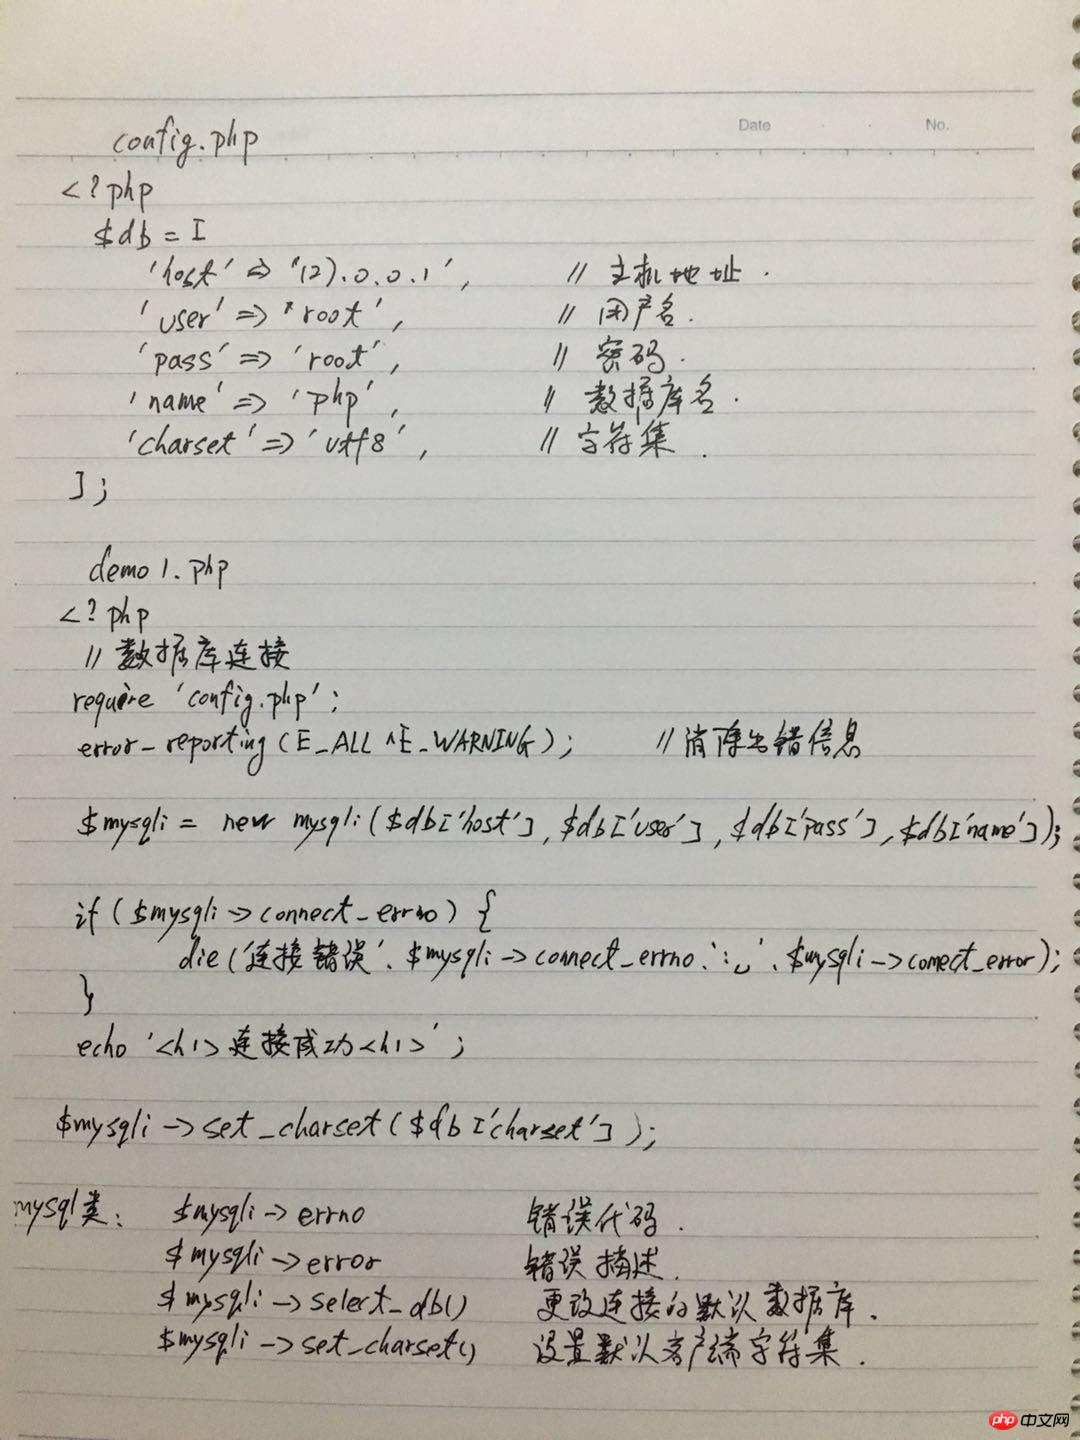 Date No.
config.php
<?php
$db = [
'host' => '127.0.0.1', // 主机地址.
'user' => 'root', // 用户名.
'pass' => 'root', // 密码.
'name' => 'php', // 数据库名.
'charset' => 'utf8', // 字符集.
];
demo1.php
<?php
// 数据库连接
require 'config.php';
error_reporting(E_ALL ^E_WARNING); // 消除出错信息
$mysqli = new mysqli($db['host'],$db['user'],$db['pass'],$db['name']);
if($mysqli->connect_errno) {
die('连接错误'.$mysqli->connect_errno.': '.$mysqli->connect_error);
}
echo '<h1>连接成功<h1>';
$mysqli->set_charset($db['charset']);
mysql类: $mysqli->errno 错误代码.
$mysqli->error 错误描述.
$mysqli->select_db() 更改连接的默认数据库.
$mysqli->set_charset() 设置默认客户端字符集.
php 中文网